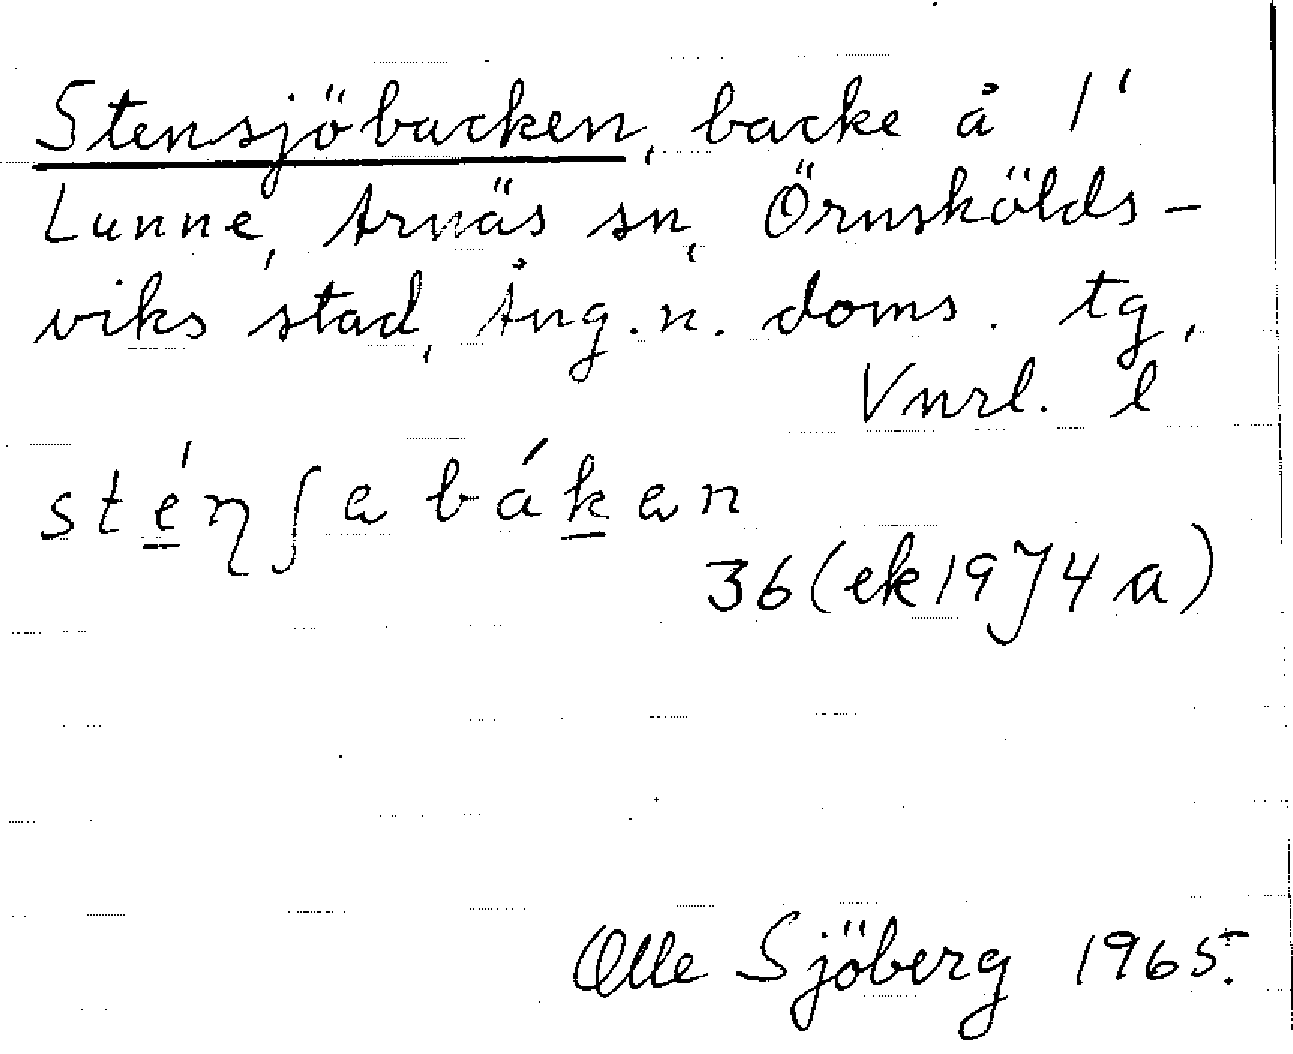 Stensjöbacken, backe å 1'
Lunne, Arnäs sn, Örnskölds-
viks stad, Ång.n. doms. tg,
Vnrl. l
sténʃa bákan
36(ek19J4a)
Olle Sjöberg 1965.